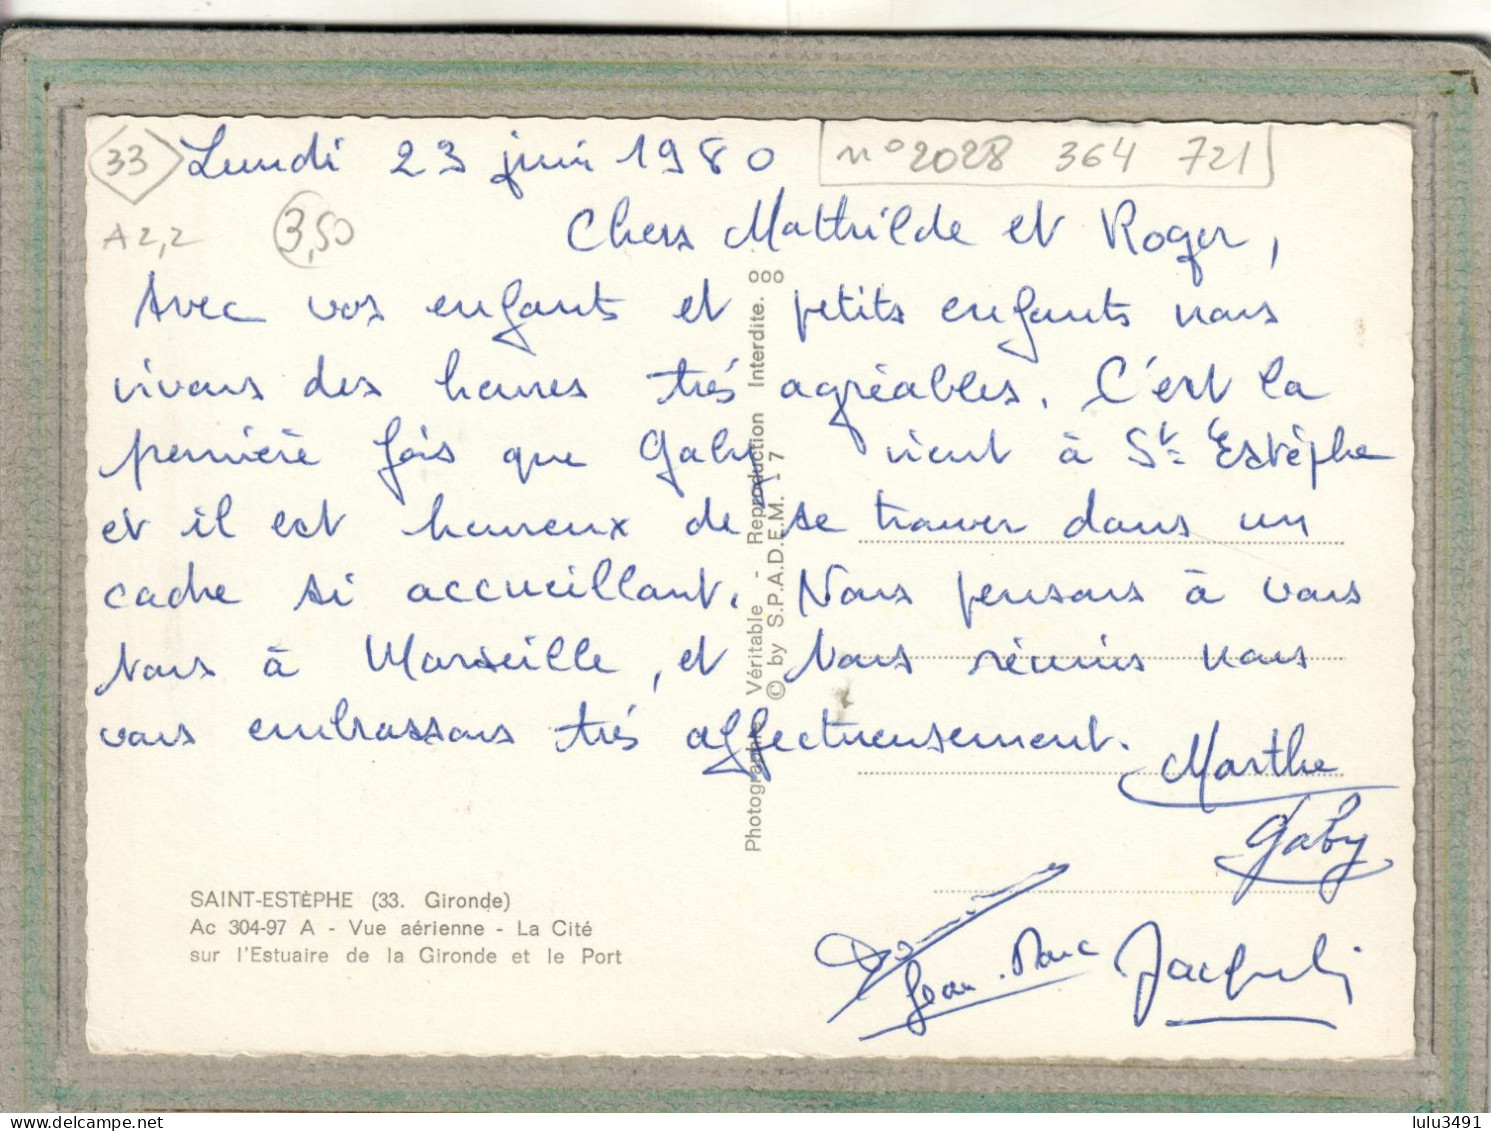 33 Lundi 23 juin 1980 n° 2028 364 721
A2,2 3,50 Chers Mathilde et Roger,
Avec vos enfants et petits enfants nous
vivons des heures très agréables. C'est la
première fois que Gaby vient à St Estèphe
et il est heureux de se trouver dans un
cadre si accueillant. Nous pensons à vous
tous à Marseille, et tous réunis nous
vous embrassons très affectueusement.
Marthe
Gaby
Jean-Marc
Photographie Véritable - Reproduction Interdite.
© by S.P.A.D.E.M. 1 7
SAINT-ESTÈPHE (33. Gironde)
Ac 304-97 A - Vue aérienne - La Cité
sur l'Estuaire de la Gironde et le Port
delcampe.net
lulu3491